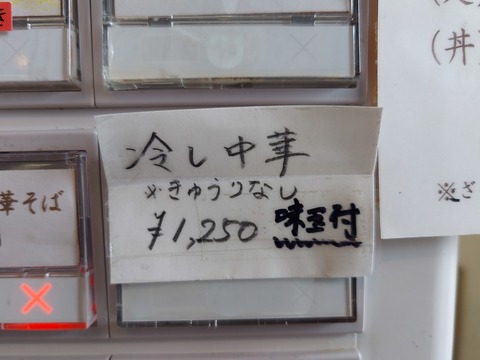 き
冷し中華
※きゅうりなし
¥1,250 味玉付
華そば
(丼)
※ざ